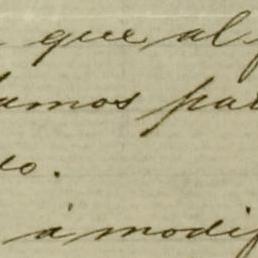 que al
amos par
do.
á modif